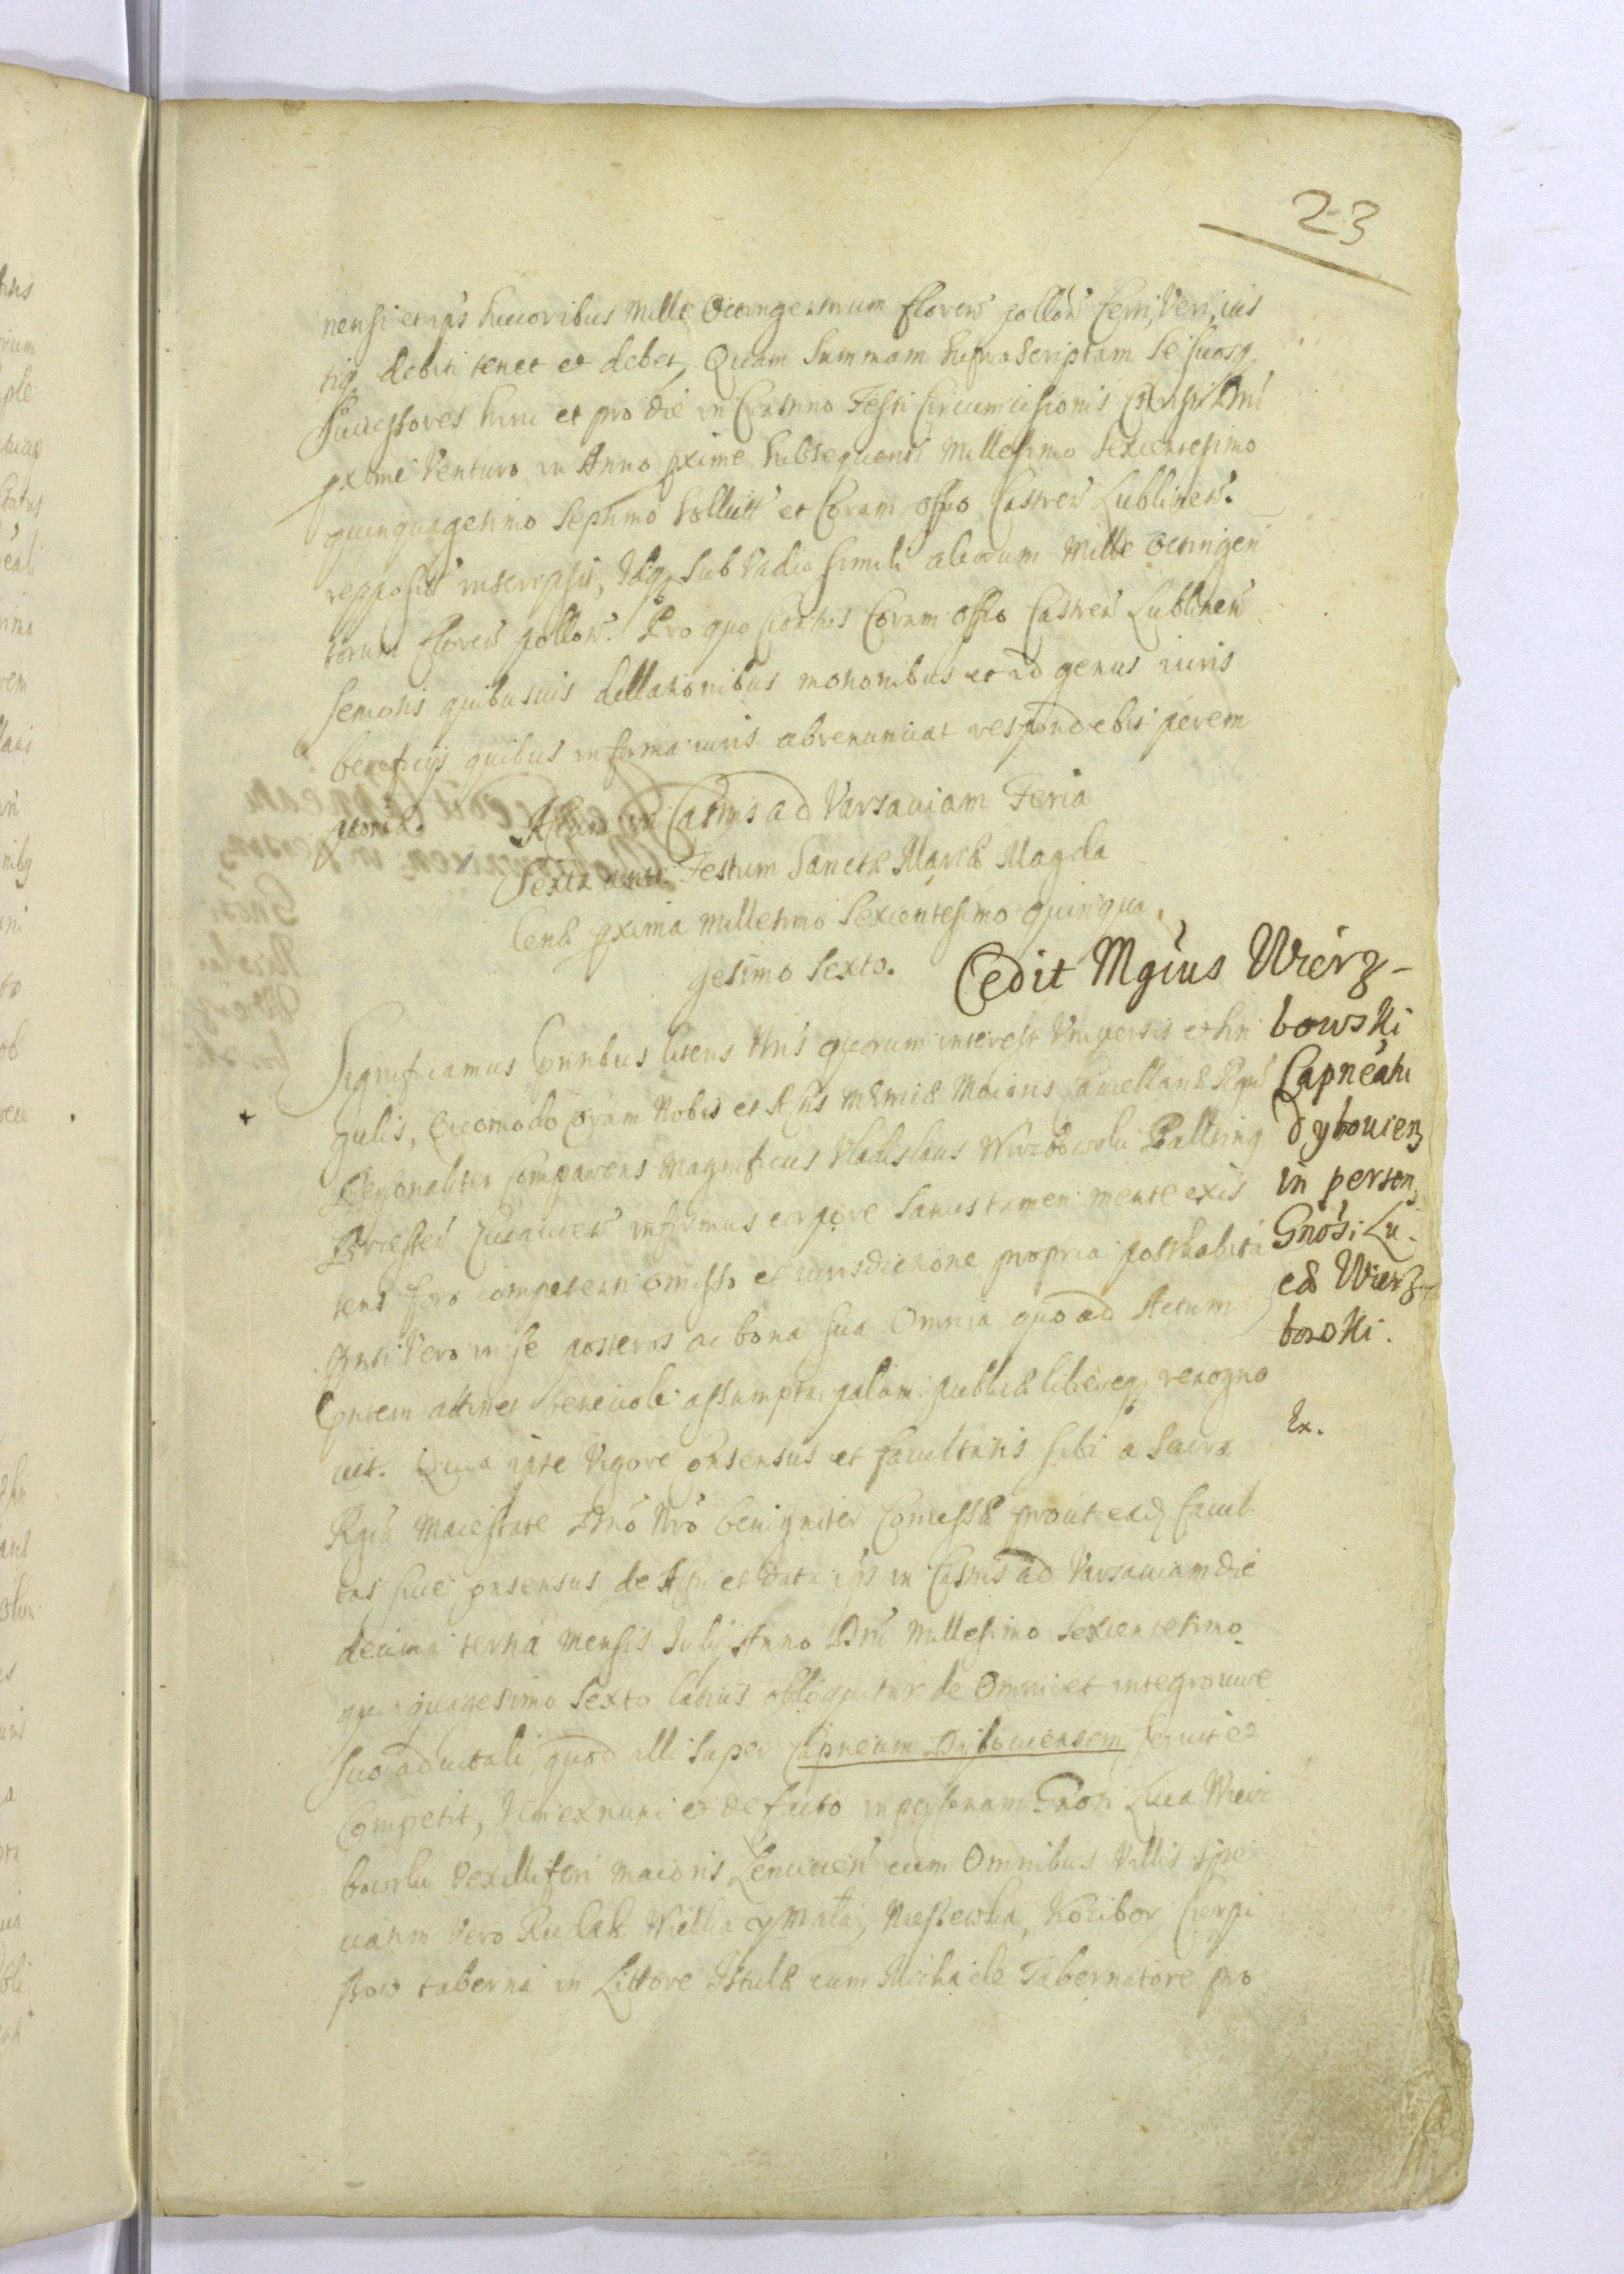 23
nensi et ips̃ successoribus Mille Octingentorum floren̄ pollon̄ Certi, Veri, ius
tiq̨ debiti tenet et debet, Quam Summam suprascriptam Se suosq̨
Successores hinc et pro die in Crastino Festi Circumcisionis Christi Dn̄i
pxime Venturo in Anno pxime subsequenti Millesimo Sexcentesimo
quinquagesimo Septimo solluit et Coram Offo Castren̄ Lublinen̄.
repponit inscripsit, Idq̨ sub Vadio simili aliorum Mille Octingen
torum floren̄ pollon̄. Pro quo Coram Offo Castren̄ Lublinen̄
semotis quibusuis dillationibus motionibus et id genus iuris
beneficijs quibus in forma iuris abrenunciat respondebit perem
ptorie. Actum in Castris ad Varsauiam Feria
Sexta ante Festum Sanctæ Mariæ Magda
lenæ pxima Millesimo Sexcentesimo quinqua
gesimo Sexto.
Cedit Mgcus Wierz-
bowski
Capneatu
Dybouien̄
in person̄
Gnosi Lu-
cæ Wierz-
bowski.
Ex.
Significamus pntibus literis nr̃is quorum interest Vniuersis et sin
gulis, Quomodo Coram Nobis et Actis Metricæ Maioris Cancellariæ Regni
Personaliter Comparens Magnificus Vladislaus Wirzbowski Pallatinq̨
Brzesten̄ Cuiauien̄ infirmus corpore sanus tamen mente exis
tens foro competenti omisso et iurisdictione propria posthabita
pnti Vero in se posteros ac bona sua Omnia quo ad Actum
pntem attinet beneuole assumpta palam publice libereq̨ recogno
uit. Quia ipse Vigore Consensus et facultatis sibi a Sacra
Rgia Maiestate Dn̄o Nr̃o benigniter Concessæ prout ead facul
tas siue Consensus de Actu et data ips̃ in Castris ad Varsauiam die
decima tertia Mensis Julij Anno Dn̄i Millesimo Sexcentesimo
quinquagesimo Sexto latius obloquitur de Omni et integro iure
suo aduitali, quod illi super Capneatum Dybouiensem seruit et
Competit, Vti ex nunc et de facto in personam Gnosi Luca Wierz
bowski Vexilliferi Maioris Lencicien̄ cum Omnibus Villis spe
ciatim Vero Rudak Wielka y Mała, Niestewka, Kocibor, Cierpi
szow taberna in Littore Istulæ cum Michaele Tabernatore pro